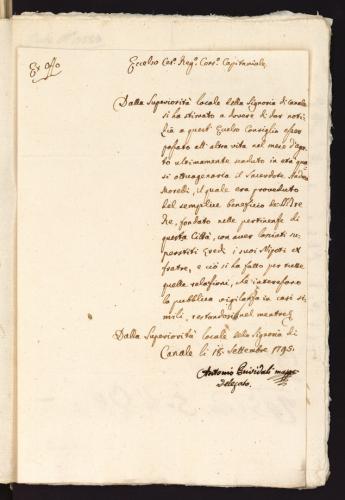 Ex offo
Eccelso Ces. Reg. Cons. Capitaniale
Dalla Superiorità locale della Signoria di Canale
si ha stimato a dovere di dar noti,
zia a quest' Eccelso Consiglio esser
passato all' altra vita nel mese d'ago,
sto ultimamente scaduto in età qua,
si ottuagenaria il Sacerdote Andrea
Morelli, il quale era proveduto
del semplice beneficio de
Re, fondato nelle pertinenze di
questa Città, con aver lasciati su,
perstiti Eredi i suoi Nipoti ex
fratre, e ciò si ha fatto per tutte
quelle relazioni, che interessano
la pubblica vigilanza in casi si,
mili, restandosi nel mentre
Dalla Superiorità locale della Signoria di
Canale li 18. Settembre 1795.
Antonio
Delegato.